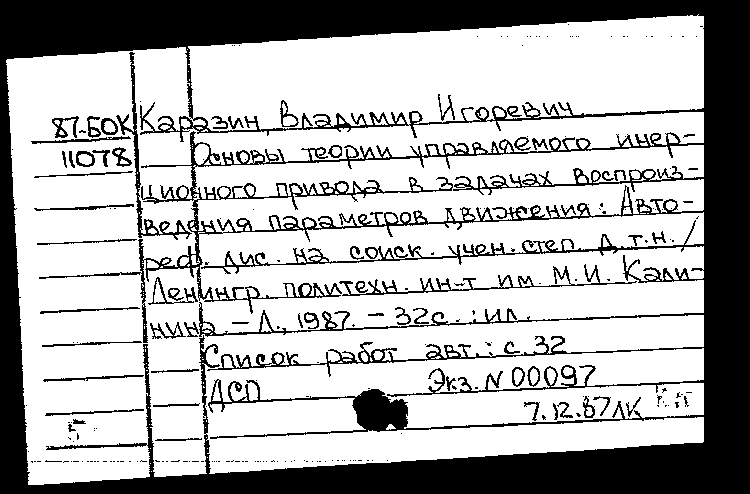 87-БОК Каразин, Владимир Игоревич
11078 Основы теории управляемого инер-
ционного привода в задачах воспроиз-
ведения параметров движения: Авто-
реф. дис. на соиск. учен. степ. д.т.н./
Ленингр. политехн. ин-т им. М.И. Кали-
нина. – Л., 1987. – 32с. : ил.
Список работ авт.: с. 32
ДСП Экз. N 00097
7.12.87 ЛК
5